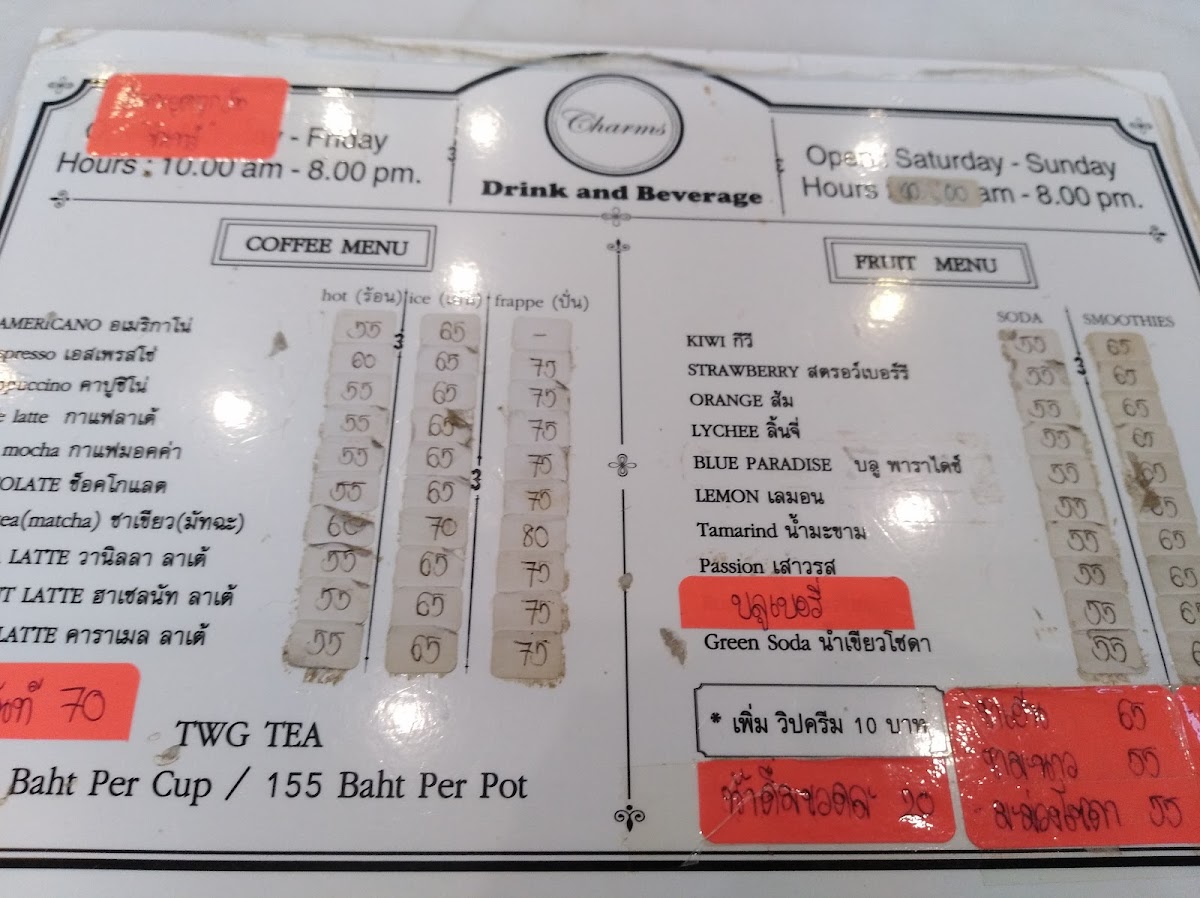 - Friday
Hours : 10.00 am - 8.00 pm.
Charms
Drink and Beverage
Open : Saturday - Sunday
Hours : am - 8.00 pm.
COFFEE MENU
hot (ร้อน) ice frappe (ปั่น)
AMERICANO อเมริกาโน่ 55 65 -
spresso เอสเพรสโซ่ 60 65 75
ppuccino คาปูชิโน่ 55 65 75
e latte กาแฟลาเต้ 55 65 75
mocha กาแฟมอคค่า 55 65 75
OLATE ช็อคโกแลต 55 65 75
ea(matcha) ชาเขียว(มัทฉะ) 60 70 80
LATTE วานิลลา ลาเต้ 55 65 75
T LATTE ฮาเซลนัท ลาเต้ 55 65 75
LATTE คาราเมล ลาเต้ 55 65 75
70
TWG TEA
Baht Per Cup / 155 Baht Per Pot
FRUIT MENU
SODA SMOOTHIES
KIWI กีวี 55 65
STRAWBERRY สตรอว์เบอร์รี 55 65
ORANGE ส้ม 55 65
LYCHEE ลิ้นจี่ 55 65
BLUE PARADISE บลู พาราไดซ์ 55 65
LEMON เลมอน 55 65
Tamarind น้ำมะขาม 55 65
Passion เสาวรส 55 65
บลูเบอรี่ 55 65
Green Soda น้ำเขียวโซดา 55
* เพิ่ม วิปครีม 10 บาท
ชาเย็น 65
ชามะนาว 55
20
55